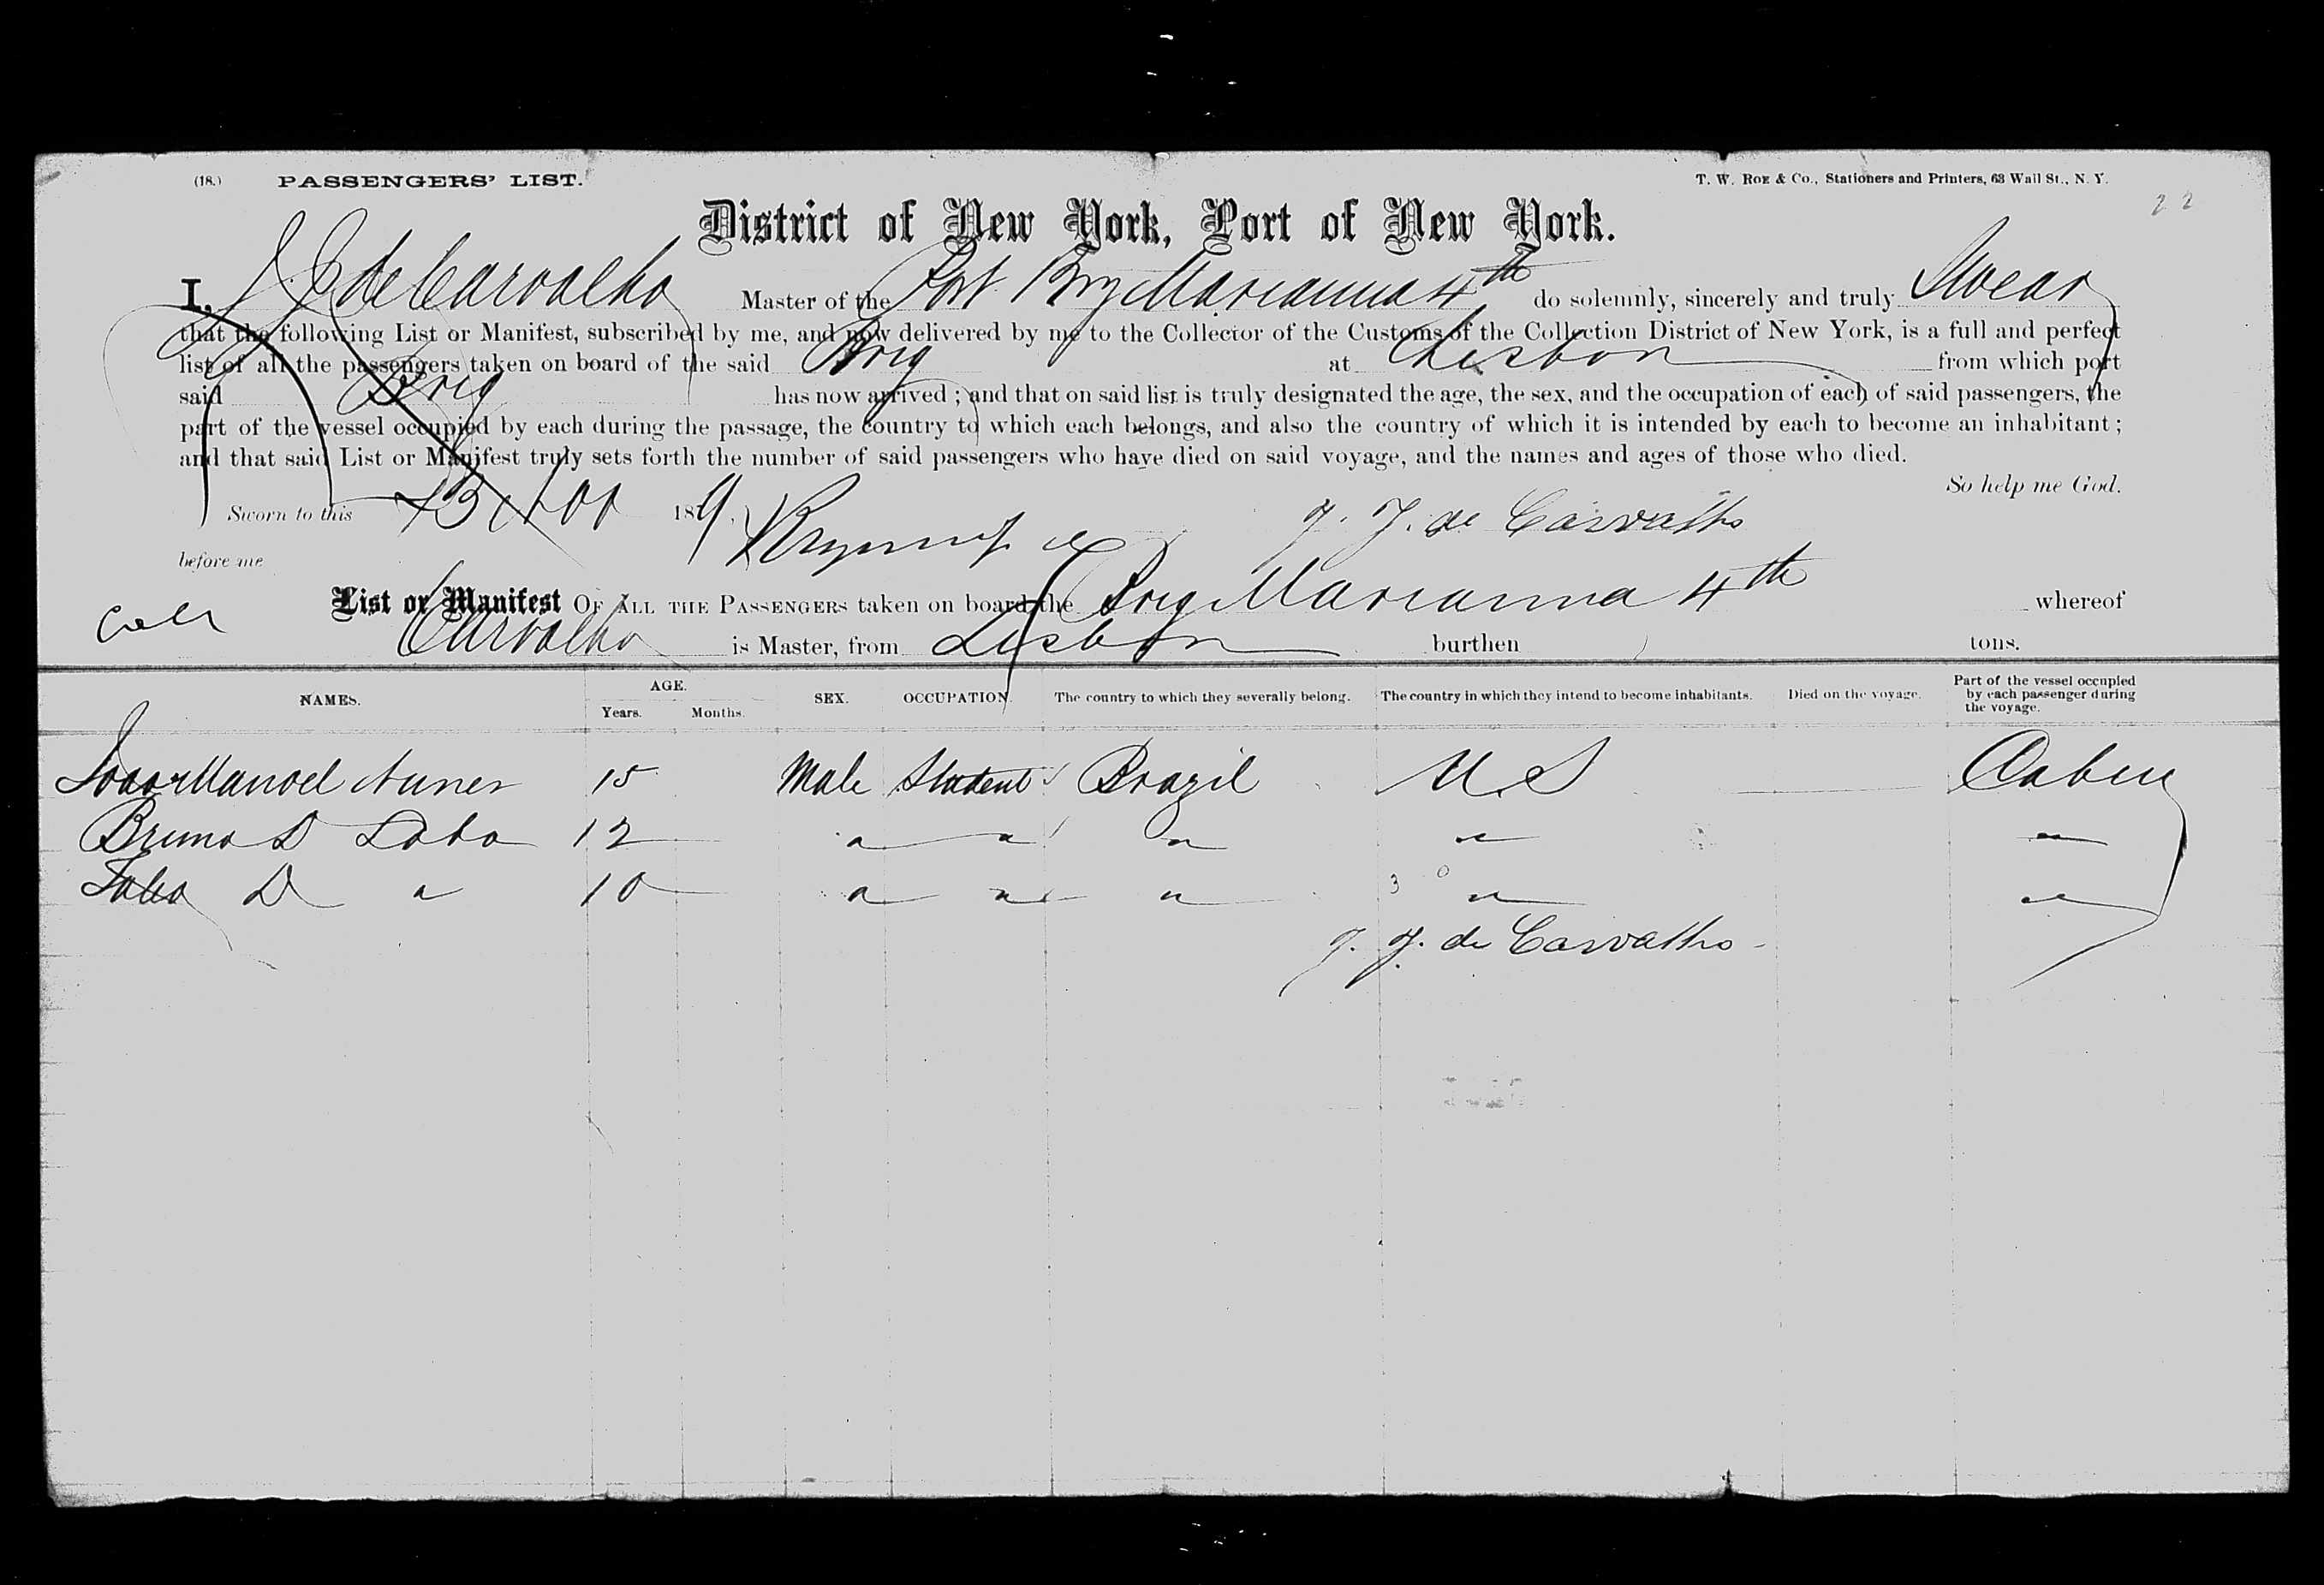 (18.) PASSENGERS' LIST. T. W. ROE & Co., Stationers and Printers, 63 Wall St., N. Y.
22
District of New York, Port of New York.
I, J. J. de Carvalho Master of the Port. Brig Marianna 4th do solemnly, sincerely and truly Swear
that the following List or Manifest, subscribed by me, and now delivered by me to the Collector of the Customs of the Collection District of New York, is a full and perfect
list of all the passengers taken on board of the said Brig at Lisbon from which port
said Brig has now arrived ; and that on said list is truly designated the age, the sex, and the occupation of each of said passengers, the
part of the vessel occupied by each during the passage, the country to which each belongs, and also the country of which it is intended by each to become an inhabitant ;
and that said List or Manifest truly sets forth the number of said passengers who have died on said voyage, and the names and ages of those who died.
So help me God.
Sworn to this 13 189 J. J. de Carvalho
before me
List or Manifest OF ALL THE PASSENGERS taken on board the Brig Marianna 4th whereof
Carvalho is Master, from Lisbon burthen tons.
NAMES. AGE. Years. Months. SEX. OCCUPATION. The country to which they severally belong. The country in which they intend to become inhabitants. Died on the voyage. Part of the vessel occupied by each passenger during the voyage.
Joao Manoel Nunes 15 Male Student Brazil U.S Cabin
Bruno D Lobo 12 " " " " "
D " 10 " " " " "
J. J. de Carvalho